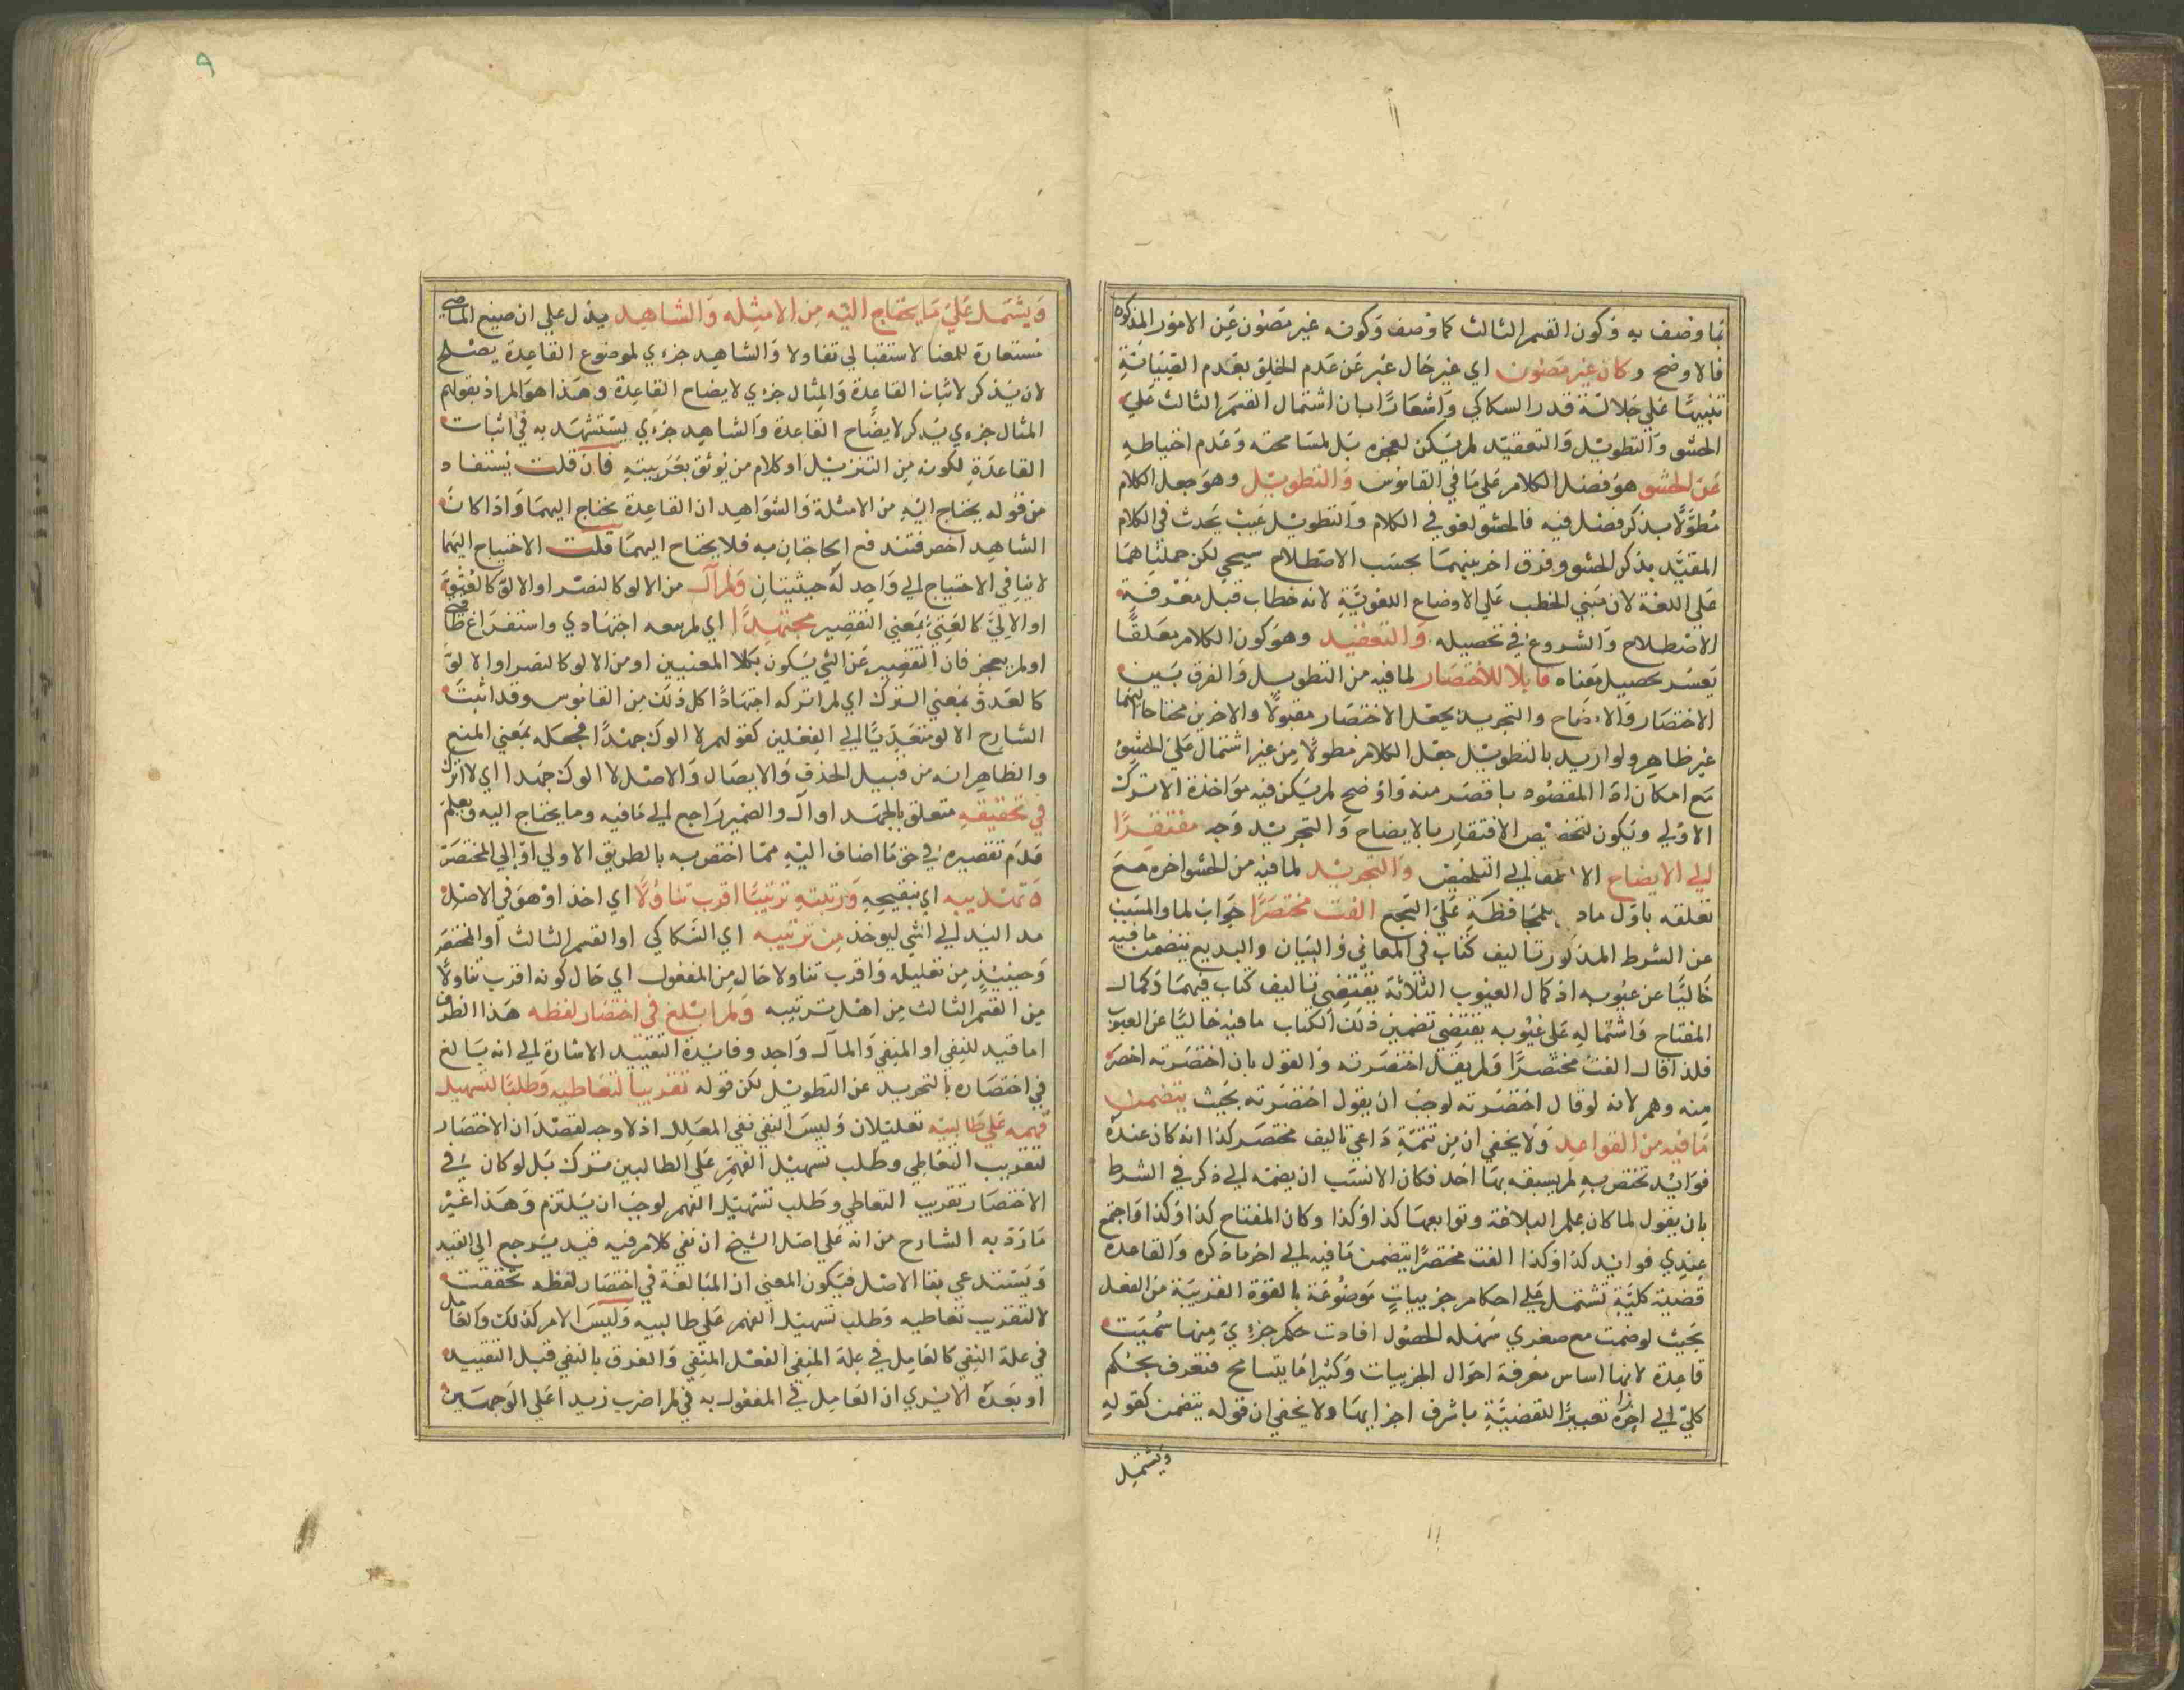 بما وصف به وكون القسم الثالث كما وصف وكونه غير مصون عن الامور المذكوره
فالاوضح وكان غير مصون اي غير خال عبر عن عدم الخلو بعدم الصيانة
تنبيها علي جلالة قدر السكاكي واشعارا بان اشتمال القسم الثالث علي
الحشو والتطويل والتعقيد لم يكن لعجزه بل لمسامحته وعدم احتياطه
عن الحشو هو فضل الكلام علي ما في القاموس والتطويل وهو جعل الكلام
مطولا بذكر فضل فيه فالحشو لغو في الكلام والتطويل عيب يحدث في الكلام
المقيد بذكر الحشو وفرق اخر بينهما بحسب الاصطلاح سيجي لكن حملناهما
علي اللغة لان مبني الخطب علي الاوضاع اللغوية لانه خطاب قبل معرفة
الاصطلاح والشروع في تحصيله والتعقيد وهو كون الكلام معلقا
يعسر تحصيل معناه قابلا للاختصار لما فيه من التطويل والفرق بين
الاختصار والايضاح والتجريد بجعل الاختصار مقبولا والاخرين محتاجا اليهما
غير ظاهر ولو اريد بالتطويل جعل الكلام مطولا من غير اشتمال علي الحشو
مع امكان ادا المقصود باقصر منه واوضح لم يكن فيه مواخذة الا ترك
الاولي ويكون لتخصيص الافتقار بالايضاح والتجريد وجه مفتقرا
الي الايضاح الي التلخيص والتجريد لما فيه من الحشو اخره مع
تعلقه باول بمحافظة علي السجع الفت مختصرا جواب لما والمسبب
عن الشرط المذكور تاليف كتاب في المعاني والبيان والبديع يتضمن ما فيه
خاليا عن عيوبه اذ كمال العيوب الثلاثة يقتضي تاليف كتاب فيهما وكمال
المفتاح واشتماله علي عيوبه يقتضي تضمين ذلك الكتاب ما فيه خاليا عن العيوب
فلذا قال الفت مختصرا ولم يقل اختصرته والقول بان اختصرته اخصر
منه وهم لانه لو قال اختصرته لوجب ان يقول اختصرته بحيث يتضمن
ما فيه من القواعد ولا يخفي ان من تتمة داعي تاليف مختصر كذا انه كان عنده
فوايد تختص به لم يسبقه بها احد فكان الانسب ان يضمه الي ذكر في الشرط
بان يقول لما كان علم البلاغة وتوابعها كذا وكذا وكان المفتاح كذا وكذا واجتمع
عندي فوايد كذا وكذا الفت مختصرا يتضمن ما فيه الي اخر ما ذكره والقاعدة
قضية كلية تشتمل علي احكام جزييات موضوعة بالقوة القريبة من الفعل
بحيث لو ضمت مع صغري سهلة الحصول افادت حكم جزءي منها سميت
قاعدة لانها اساس معرفة احوال الجزييات وكثيرا ما يتسامح فتعرف بحكم
كلي الي اخره تعبيرا للقضية باشرف اجزايها ولا يخفي ان قوله يتضمن كقوله
ويشتمل
٩
ويشتمل علي ما يحتاج اليه من الامثله والشاهد يدل علي ان صيغ الماضي
مستعارة للمعنا لاستقبالي تفاولا والشاهد جزءي لموضوع القاعدة يصلح
لان يذكر لاثبات القاعدة والمثال جزءي لايضاح القاعدة وهذا هو المراد بقولهم
المثال جزءي يذكر لايضاح القاعدة والشاهد جزءي يستشهد به في اثبات
القاعدة لكونه من التنزيل او كلام من يوثق بعربيته فان قلت يستفاد
من قوله يحتاج اليه من الامثلة والشواهد ان القاعدة تحتاج اليهما واذا كان
الشاهد اخص فتندفع الحاجتان به فلا يحتاج اليهما قلت الاحتياج اليهما
لا ينافي الاحتياج الي واحد له حيثيتان ولم آل من الالو كالنصر او الالو كالعتو
او الالي كالعتي بمعني التقصير مجتهدا اي لم يسعه اجتهادي واستفراغ طاقتي
او لم يعجز فان التقصير عن الشي يكون بكلا المعنيين او من الالو كالنصر او الالو
كالعدو بمعني الترك اي لم اترك اجتهادا كل ذلك من القاموس وقد اثبت
الشارح الالو متعديا الي الفعلين كقولهم لا الوك جهدا فجعله بمعني المنع
والظاهر انه من قبيل الحذف والايصال والاصل لا الوك جهدا اي لا اترك
في تحقيقه متعلق بالجهد او آل والضمير راجع الي ما فيه وما يحتاج اليه ويعلم
عدم تقصيره في حق ما اضاف اليه مما اختص به بالطريق الاولي او الي المختصر
وتهذيبه اي تنقيحه ورتبته ترتيبا اقرب تناولا اي اخذا وهو في الاصل
مد اليد الي الشي ليوخذ من ترتيبه اي السكاكي او القسم الثالث او المختصر
وحينيذ من تعليله واقرب تناولا حال من المفعول اي حال كونه اقرب تناولا
من القسم الثالث من اهل ترتيبه ولم ابالغ في اختصار لفظه هذا الظرف
اما قيد للنفي او المنفي والمآل واحد وفايدة التقييد الاشارة الي انه بالغ
في اختصاره بالتجريد عن التطويل لكن قوله تقريبا لتعاطيه وطلبا لتسهيل
فهمه علي طالبيه تعليلان وليس النفي نفي المعلل اذ لا وجه لقصد ان الاختصار
لتقريب التعاطي وطلب تسهيل الفهم علي الطالبين متروك بل لو كان في
الاختصار تقريب التعاطي وطلب تسهيل الفهم لوجب ان يلتزم وهذا غير
ما رده به الشارح من انه علي اصل الشيخ ان نفي كلام فيه قيد يرجع الي القيد
ويستدعي بقا الاصل فيكون المعني ان المبالغة في اختصار لفظه تحققت
لا لتقريب تعاطيه وطلب تسهيل الفهم علي طالبيه وليس الامر كذلك والعامل
في علة النفي كالعامل في علة المنفي الفعل المنفي والفرق بالنفي قبل التقييد
او بعده الا يري ان العامل في المفعول به في لم اضرب زيدا علي الوجهين